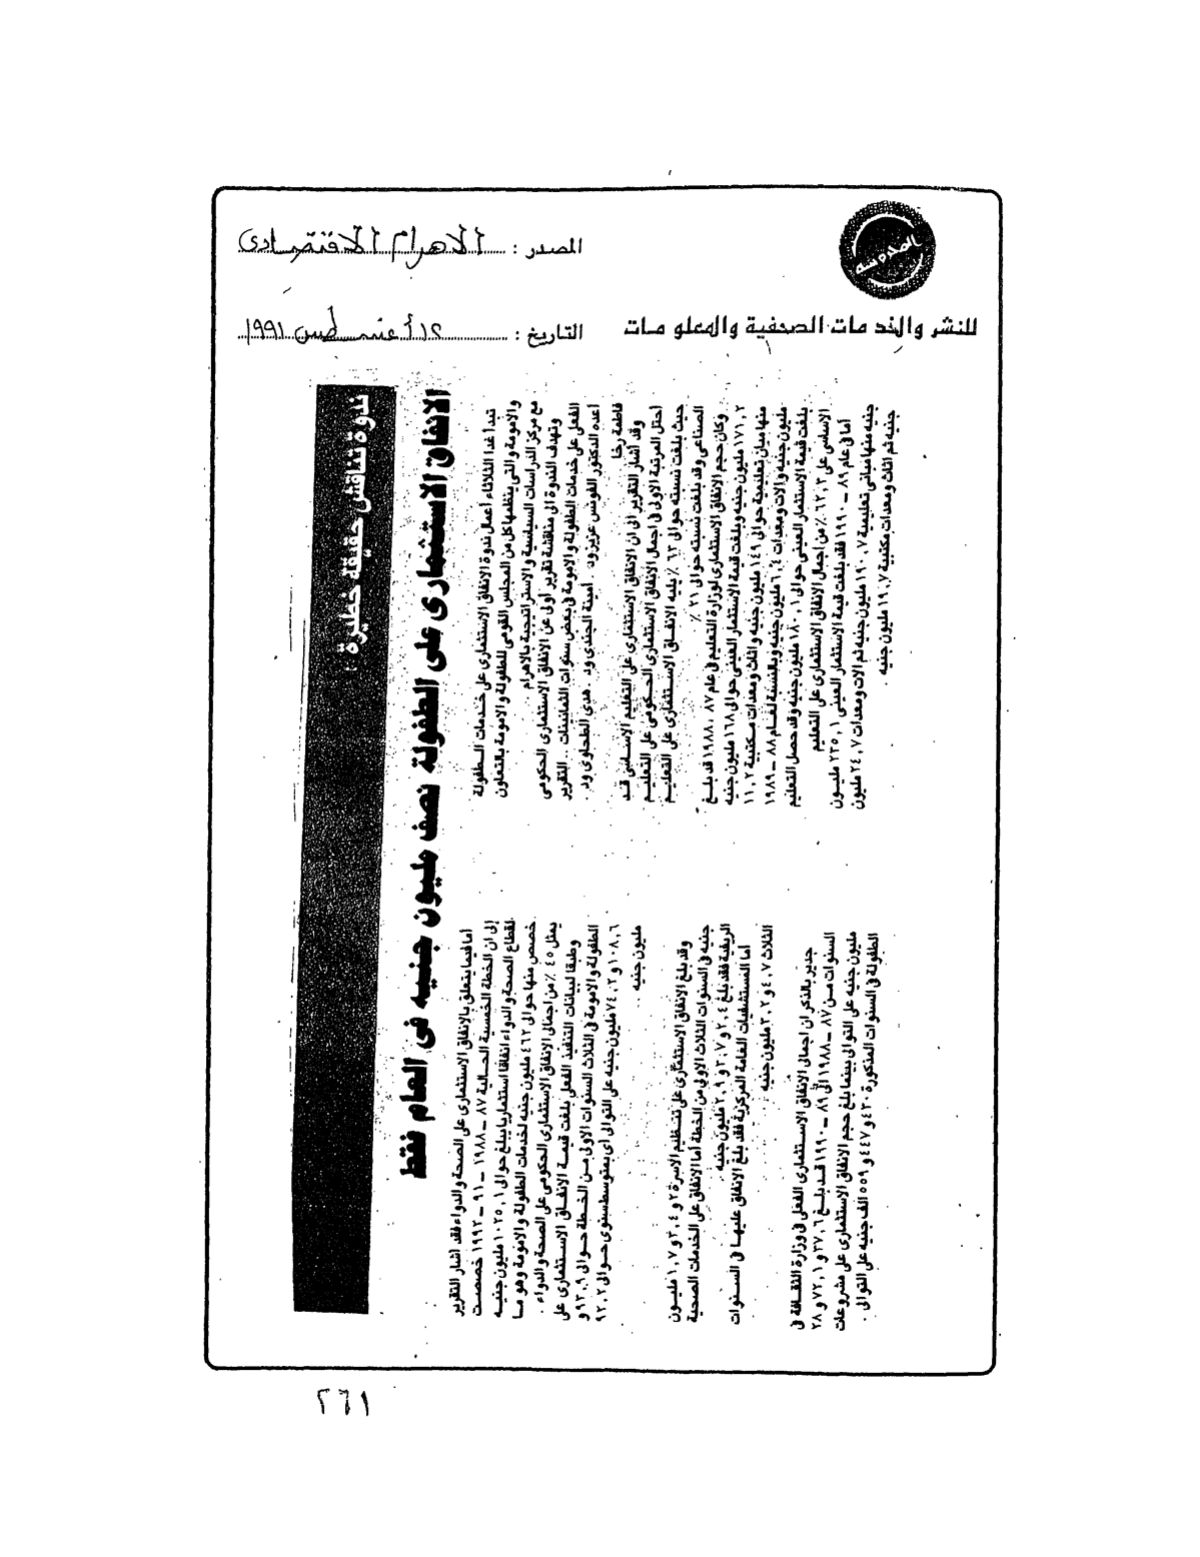 المصدر : الاهرام الاقتصادى
للنشر والخدمات الصحفية والمعلومات
التاريخ : ١٢ أغسطس ١٩٩١
ندوة تناقش حقيقة خطيرة :
الانفاق الاستثمارى على الطفولة نصف مليون جنيه فى العام فقط
تبدأ غدا الثلاثاء أعمال ندوة الانفاق الاستثمارى على خدمات الطفولة
والامومة والتى ينظمها كل من المجلس القومى للطفولة والامومة بالتعاون
مع مركز الدراسات السياسية والاستراتيجية بالاهرام .
وتهدف الندوة الى مناقشة تقرير أولى عن الانفاق الاستثمارى الحكومى
الفعلى على خدمات الطفولة والامومة فى بعض سنوات الثمانينات . التقرير
أعده الدكتور الفونس عزيز ود . أمينة الجندى ود . هدى الطحلاوى ود .
فاطمة رجا
وقد أشار التقرير الى ان الانفاق الاستثمارى على التعليم الاساسى قد
احتل المرتبة الاولى فى اجمالى الانفاق الاستثمارى الحكومى على التعليم
حيث بلغت نسبته حوالى ٦٢ ٪ يليه الانفاق الاستثمارى على التعليم
الصناعى وقد بلغت نسبته حوالى ٢١ ٪
وكان حجم الانفاق الاستثمارى لوزارة التعليم فى عام ٨٧ ، ١٩٨٨ قد بلغ
١٧١,٢ مليون جنيه وبلغت قيمة الاستثمار العينى حوالى ١٦٨ مليون جنيه
منها مبان تعليمية حوالى ١٤٩ مليون جنيه واثاث ومعدات مكتبية ١١,٢
مليون جنيه وآلات ومعدات ٦,٤ مليون جنيه وبالنسبة لعام ٨٨ – ١٩٨٩
بلغت قيمة الاستثمار العينى حوالى ١٨٠,١ مليون جنيه وقد حصل التعليم
الاساسى على ٦٢,٣ ٪ من اجمالى الانفاق الاستثمارى على التعليم
أما فى عام ٨٩ – ١٩٩٠ فقد بلغت قيمة الاستثمار العينى ٢٣٥,١ مليون
جنيه منها مبانى تعليمية ١٩٠,٧ مليون جنيه ثم الات ومعدات ٢٤,٧ مليون
جنيه ثم اثاث ومعدات مكتبية ١٩,٧ مليون جنيه .
أما فيما يتعلق بالانفاق الاستثمارى على الصحة والدواء فقد أشار التقرير
إلى ان الخطة الخمسية الحالية ٨٧ – ١٩٨٨ – ٩١ – ١٩٩٢ خصصت
لقطاع الصحة والدواء انفاقا استثماريا يبلغ حوالى ١٠٢٥,١ مليون جنيه
خصص منها حوالى ٤٦٢ مليون جنيه لخدمات الطفولة والامومة وهو ما
يمثل ٤٥ ٪ من اجمالى الانفاق الاستثمارى الحكومى على الصحة والدواء .
وطبقا لبيانات التنفيذ الفعلى بلغت قيمة الانفاق الاستثمارى على
الطفولة والامومة فى الثلاث السنوات الاولى من الخطة حوالى ٩٣,٩ و
١٠٨,٦ و ٧٤,٣ مليون جنيه على التوالى أى بمتوسط سنوى حوالى ٩٢,٢
مليون جنيه .
وقد بلغ الانفاق الاستثمارى على تنظيم الاسرة ٢ و ٣,٤ و ١,٧ مليون
جنيه فى السنوات الثلاث الاولى من الخطة أما الانفاق على الخدمات الصحية
الريفية فقد بلغ ٢,٤ و ٣,٧ و ٢,٩ مليون جنيه
أما المستشفيات العامة المركزية فقد بلغ الانفاق عليها فى السنوات
الثلاث ٤,٧ و ٣,٢ مليون جنيه
جدير بالذكر ان اجمالى الانفاق الاستثمارى الفعلى فى وزارة الثقافة فى
السنوات من ٨٧ – ١٩٨٨ الى ٨٩ – ١٩٩٠ قد بلغ ٣٧,٦ و ٧٢,١ و ٢٨
مليون جنيه على التوالى بينما بلغ حجم الانفاق الاستثمارى على مشروعات
الطفولة فى السنوات المذكورة ٤٣٠ و ٤٤٧ و ٥٥٩ الف جنيه على التوالى .
٢٦١